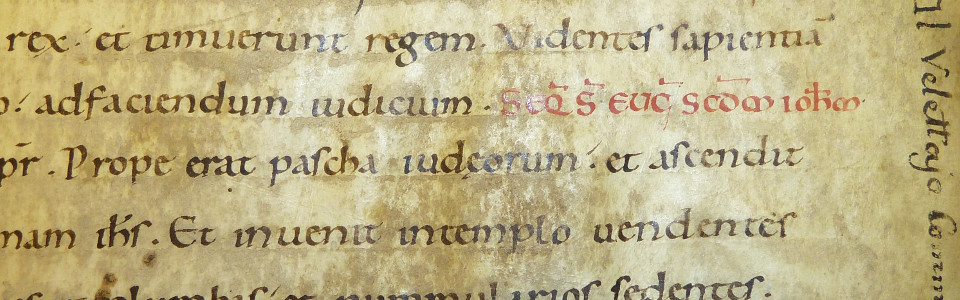 rex. et timuerunt regem. Videntes sapientiā
adfaciendum iudicium. SEQ̄ S̄ EUḠ SCDM IOħM
pr̄. Prope erat pascha iudęorum. et ascendit
nam iħs. Et inuenit intemplo uendentes
et nummularios sedentes.